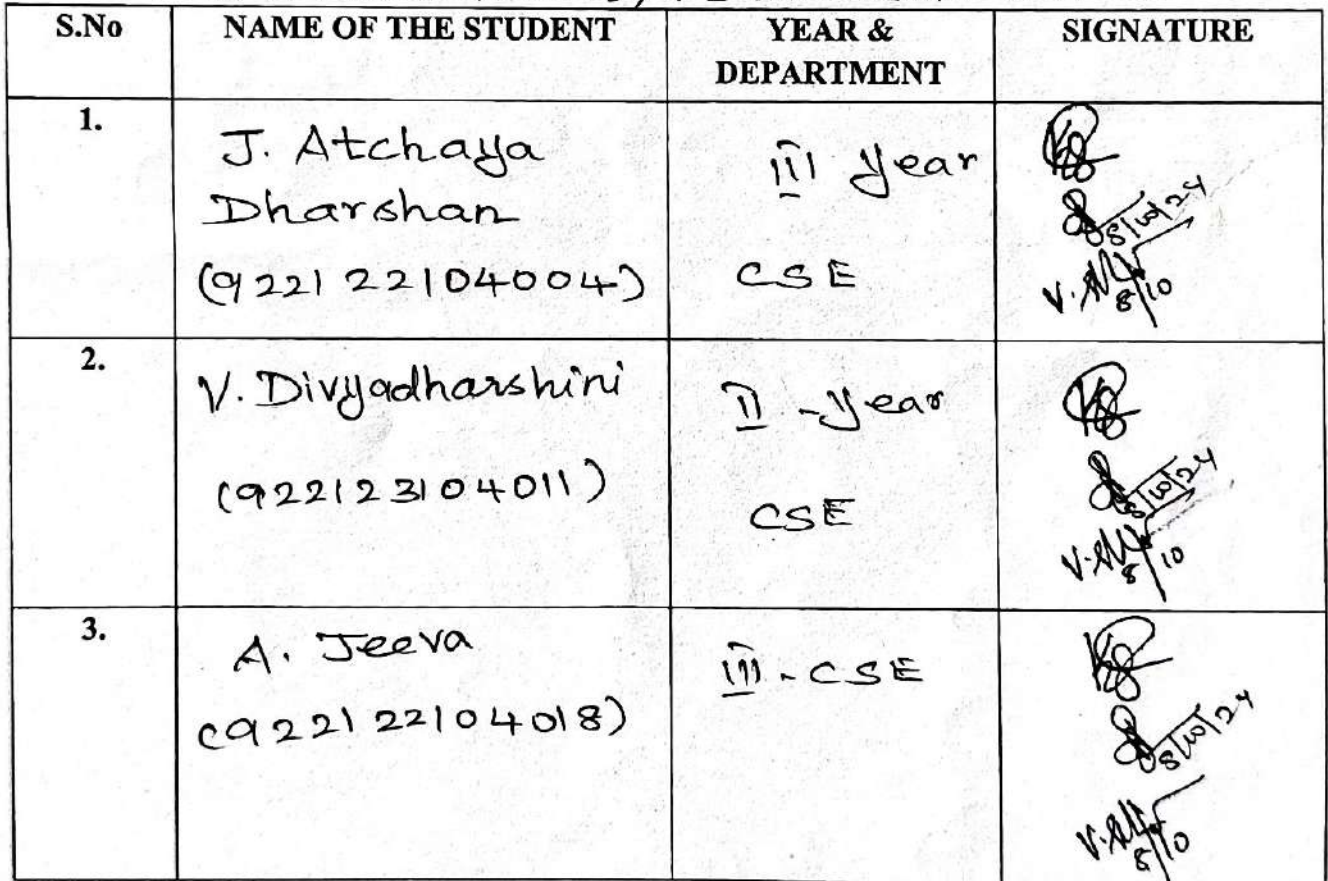 S.No NAME OF THE STUDENT YEAR & DEPARTMENT SIGNATURE
1.
J. Atchaya
Dharshan
(922122104004)
III Year
CSE
8/10/24
8/10
2.
V. Divyadharshini
(922123104011)
II - Year
CSE
8/10/24
8/10
3.
A. Jeeva
(922122104018)
III - CSE
8/10/24
8/10